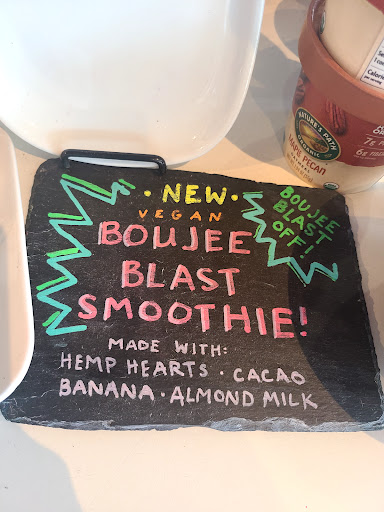 • NEW •
VEGAN
BOUJEE
BLAST
SMOOTHIE!
MADE WITH:
HEMP HEARTS • CACAO
BANANA • ALMOND MILK
BOUJEE
BLAST
OFF!
NATURE'S PATH
ORGANIC
MAPLE PECAN